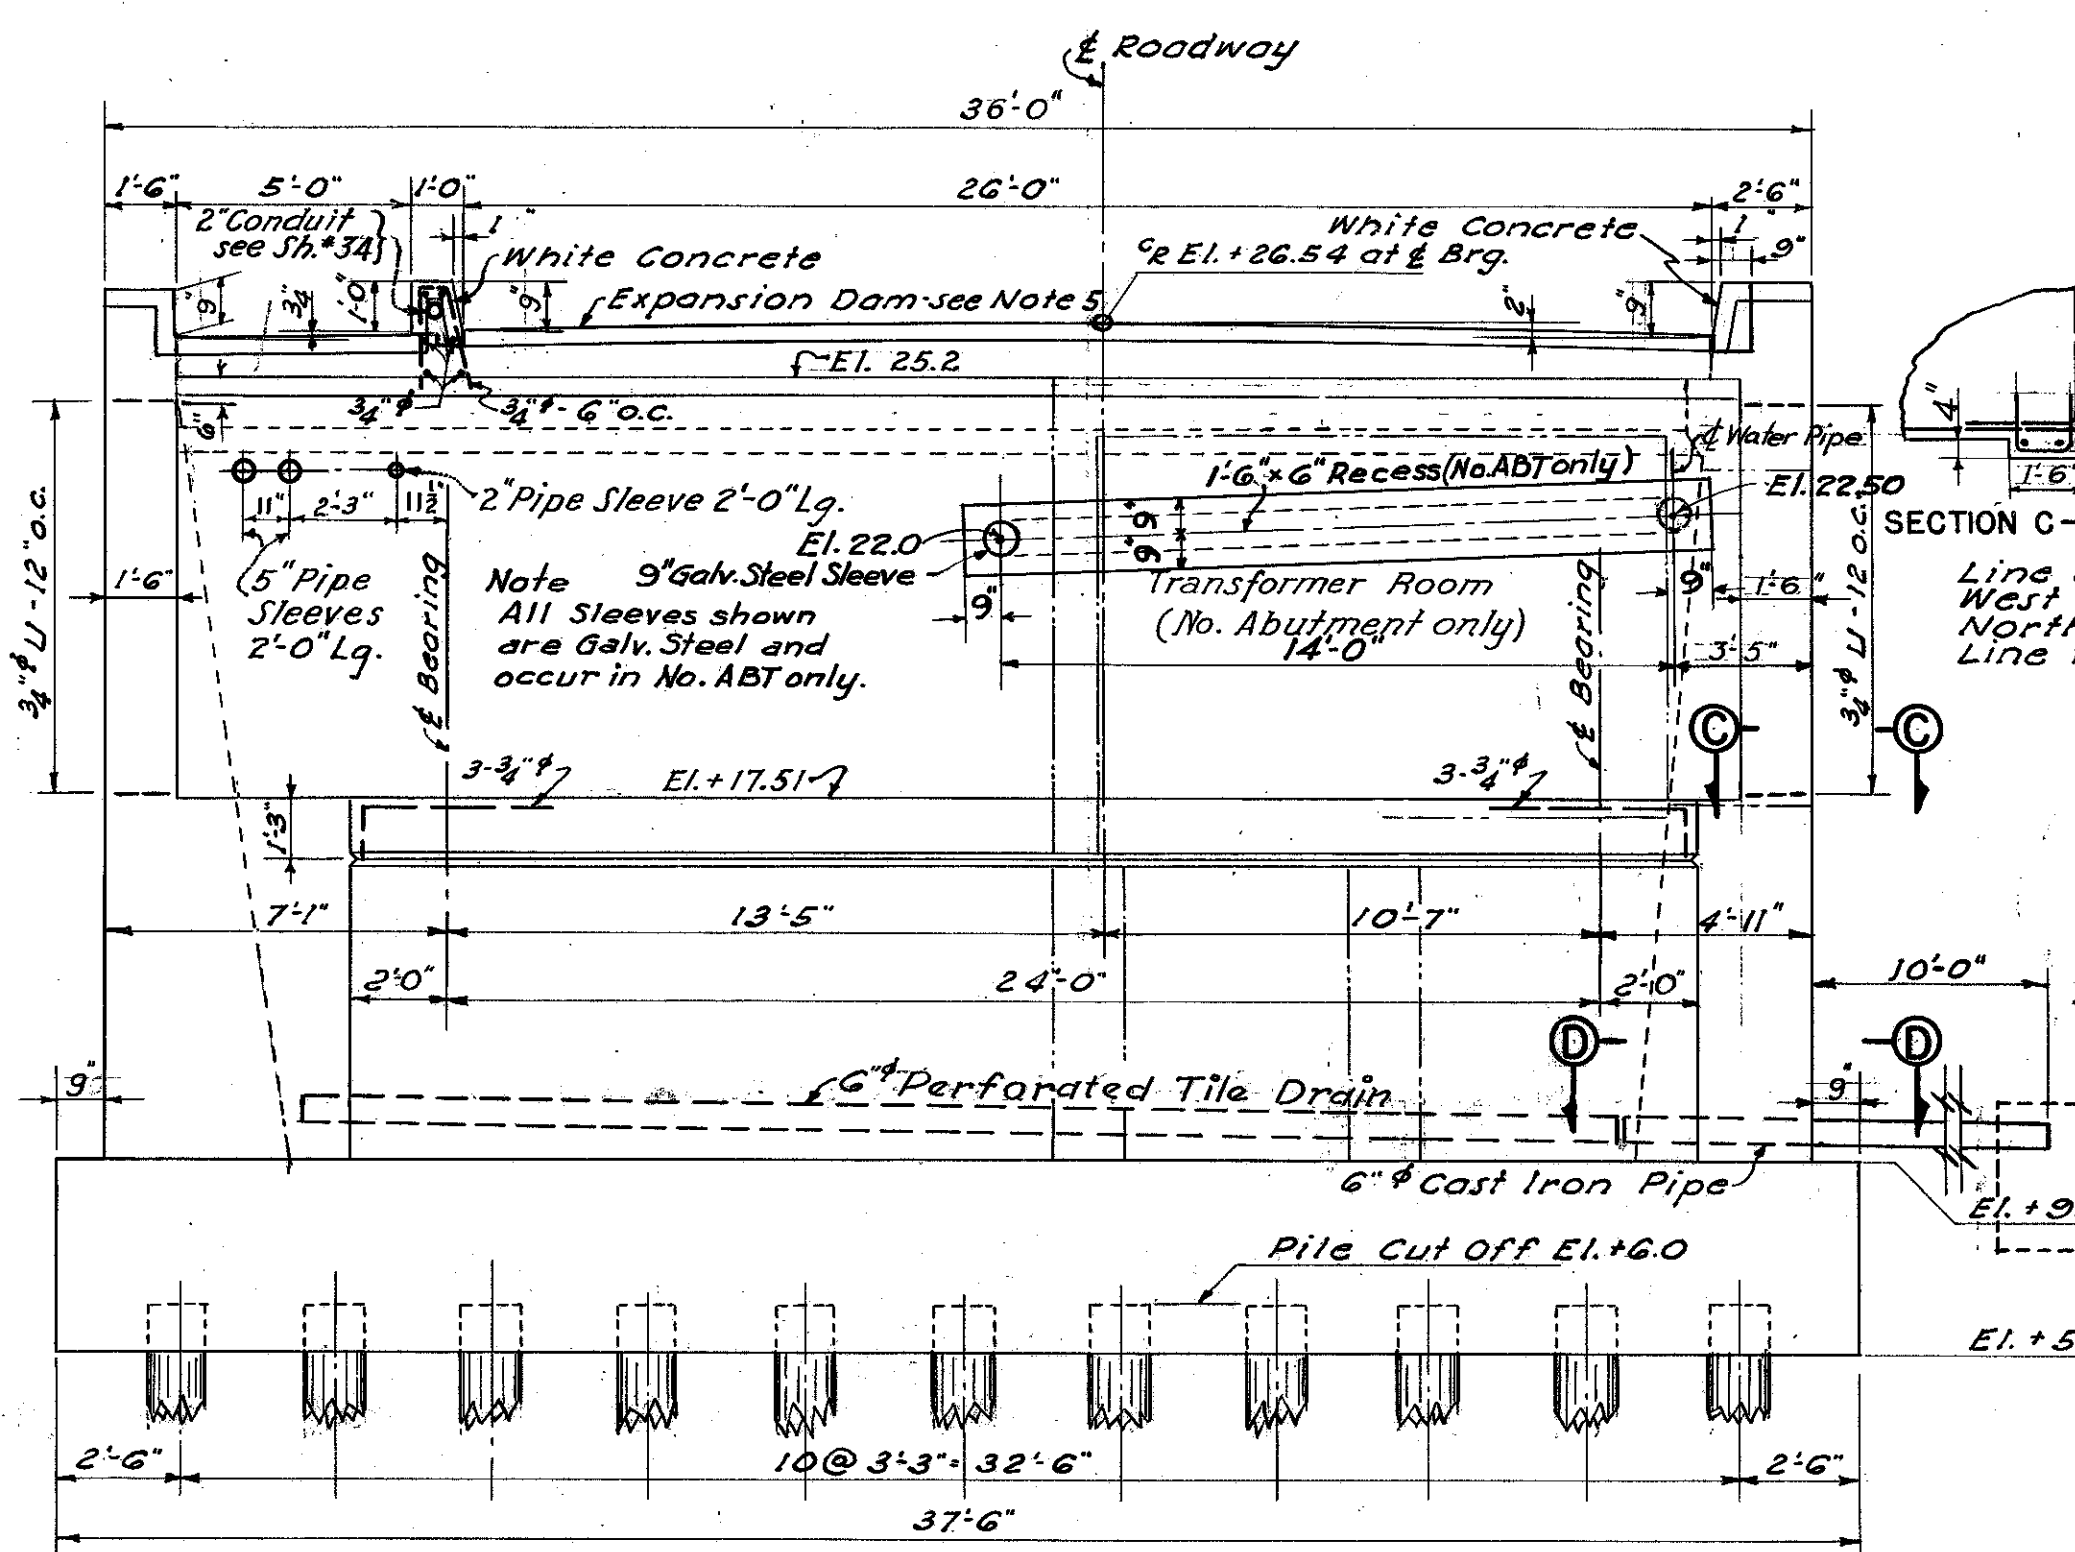 ℄ Roadway
36'-0"
1'-6" 5'-0" 1'-0" 26'-0" 2'-6"
2" Conduit
see Sh. #34
1"
White Concrete
White Concrete
1"
9"
CR El. +26.54 at ℄ Brg.
9" 3/4" 1'-0" 9"
Expansion Dam-see Note 5
2" 9"
El. 25.2
3/4"ϕ 3/4"ϕ- 6" o.c.
6"
℄ Water Pipe
4"
1'-6"
1'-6"x 6" Recess (No. ABT only)
El. 22.50
11" 2'-3" 11½"
2" Pipe Sleeve 2'-0" Lg.
SECTION C-
El. 22.0
9" 9"
9" Galv. Steel Sleeve
1'-6"
5" Pipe
Sleeves
2'-0" Lg.
℄ Bearing
Note
All Sleeves shown
are Galv. Steel and
occur in No. ABT only.
9"
Transformer Room
(No. Abutment only)
14'-0"
℄ Bearing
9" 1'-6"
3'-5"
Line
West
North
Line
3/4"ϕ ⊔ -12" o.c.
3/4"ϕ ⊔ -12 o.c.
C C
3-3/4"ϕ
El. +17.51
3-3/4"ϕ
1'-3"
7'-1" 13'-5" 10'-7" 4'-11"
2'-0" 24'-0" 2'-0"
10'-0"
D D
9"
6"ϕ Perforated Tile Drain
9"
6"ϕ Cast Iron Pipe
El. +9
Pile Cut Off El. +6.0
El. +5
2'-6" 10 @ 3'-3" = 32'-6" 2'-6"
37'-6"